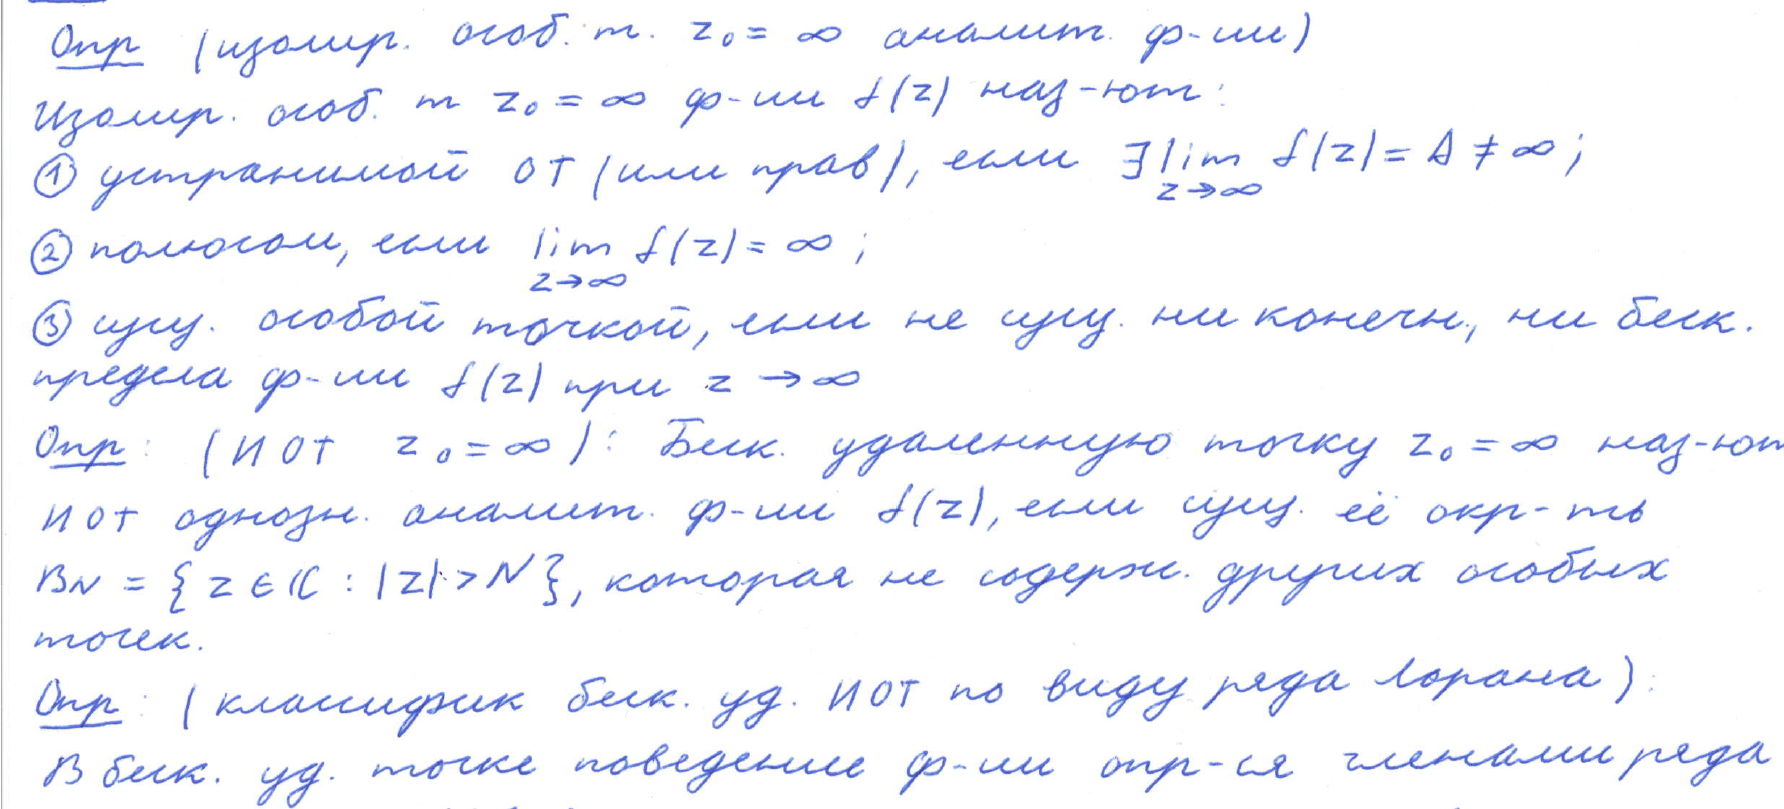 Опр (изолир. особ. т. z₀ = ∞ аналит. ф-ии)
Изолир. особ. т z₀ = ∞ ф-ии f(z) наз-ют:
① устранимой ОТ (или прав), если ∃ lim f(z) = A ≠ ∞;
z→∞
② полюсом, если lim f(z) = ∞;
z→∞
③ сущ. особой точкой, если не сущ. ни конечн., ни беск.
предела ф-ии f(z) при z → ∞
Опр: (ИОТ z₀ = ∞): Беск. удаленную точку z₀ = ∞ наз-ют
ИОТ однозн. аналит. ф-ии f(z), если сущ. её окр-ть
B_N = {z ∈ ℂ : |z| > N}, которая не содерж. других особых
точек.
Опр: (классифик беск. уд. ИОТ по виду ряда Лорана):
В беск. уд. точке поведение ф-ии опр-ся членами ряда